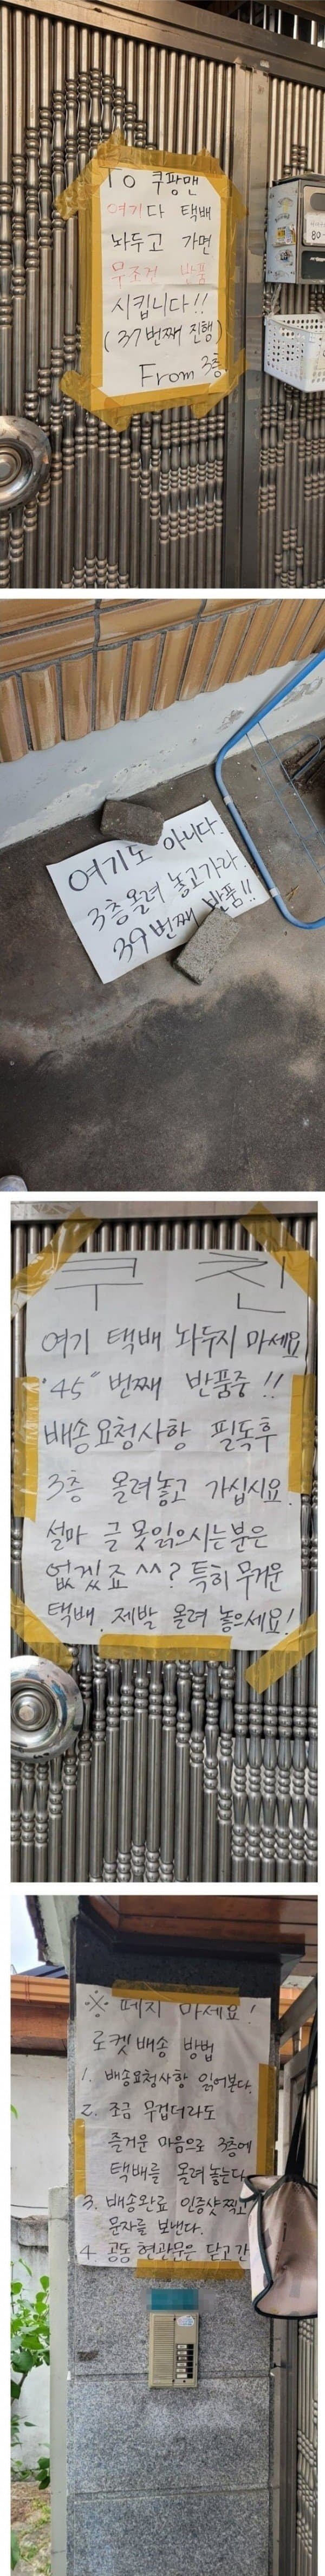 To 쿠팡맨
여기다 택배
놔두고 가면
무조건 반품
시킵니다!!
(37번째 진행)
From 3층
80
여기도 아니다.
3층올려 놓고가라.
39번째 반품!!
쿠 친
여기 택배 놔두지 마세요
"45" 번째 반품중!!
배송요청사항 필독후
3층 올려놓고 가십시요.
설마 글 못읽으시는분은
없겠죠^^? 특히 무거운
택배. 제발 올려 놓으세요!
※ 떼지 마세요!
로켓배송 방법
1. 배송요청사항 읽어본다.
2. 조금 무겁더라도
즐거운 마음으로 3층에
택배를 올려놓는다.
3. 배송완료 인증샷찍고
문자를 보낸다.
4. 공동현관문은 닫고간